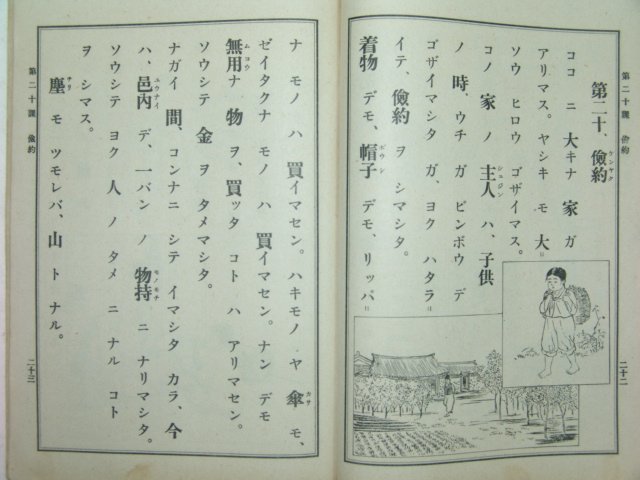 第二十課　儉約
二十二
第二十、儉約
ケンヤク
ココ ニ 大キナ 家 ガ
アリマス。ヤシキ モ 大
ソウ ヒロウ ゴザイマス。
コノ 家 ノ 主人 ハ、子供
シユジン
ノ 時、ウチ ガ ビンボウ デ
ゴザイマシタ ガ、ヨク ハタラ
イテ、儉約 ヲ シマシタ。
着物 デモ、帽子 デモ、リッパ
ボウシ
ナ モノ ハ 買イマセン。ハキモノ ヤ 傘 モ、
カサ
ゼイタクナ モノ ハ 買イマセン。ナン デモ
無用ナ 物 ヲ、買ッタ コト ハ アリマセン。
ムヨウ
ソウシテ 金 ヲ タメマシタ。
ナガイ 間、コンナニ シテ イマシタ カラ、今
ハ、邑內 デ、一バン ノ 物持 ニ ナリマシタ。
ユウナイ
モノモチ
ソウシテ ヨク 人 ノ タメ ニ ナル コト
ヲ シマス。
塵 モ ツモレバ、山 ト ナル。
チリ
第二十課　儉約
二十三